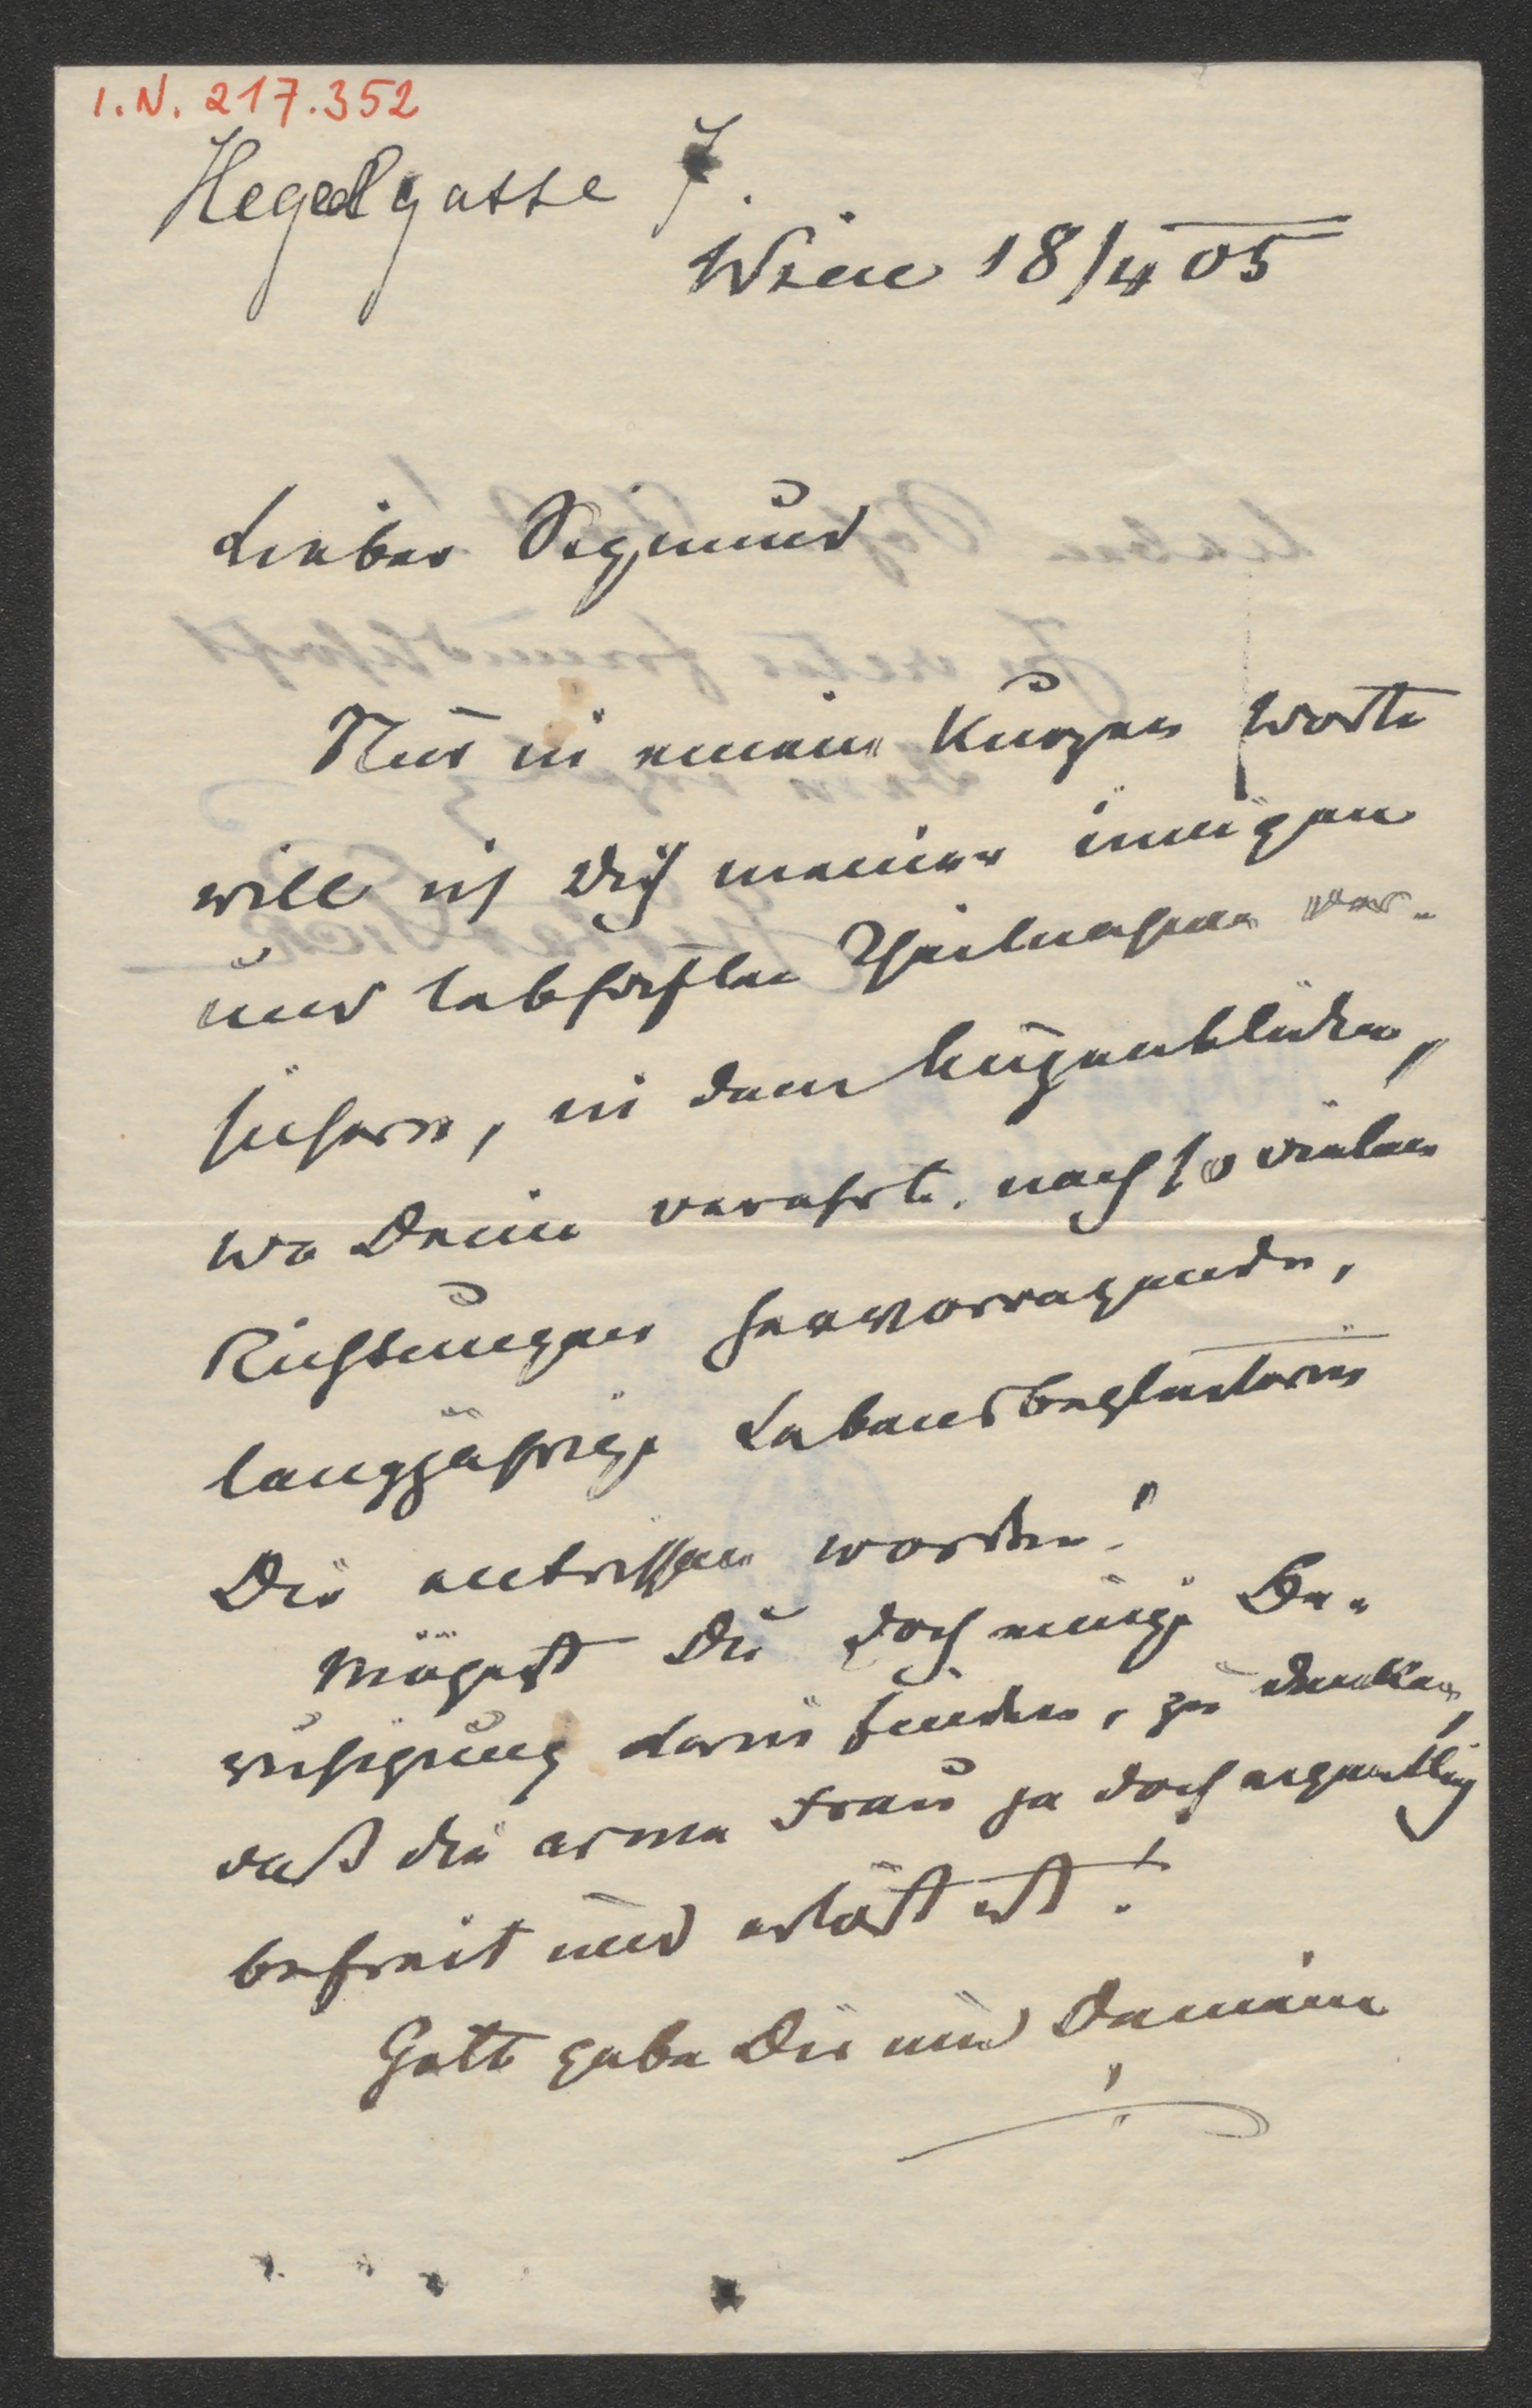 I.N. 217.352
Hegelgasse 7.
Wien 18/4 05
Lieber Sigmund
Nur in einem kurzen Worte
will ich Dich meiner innigen
und lebhaften Theilnahme ver-
sichern, in dem Augenblicke,
wo Deine verehrte, nach so vielen
Richtungen hervorragende,
langjährige Lebensbegleiterin
Dir entrissen worden!
Mögest Du doch einige Be-
ruhigung darin finden, zu denken,
daß die arme Frau ja doch eigentlich
befreit und erlöst ist!
Gott gebe Dir und Deinen